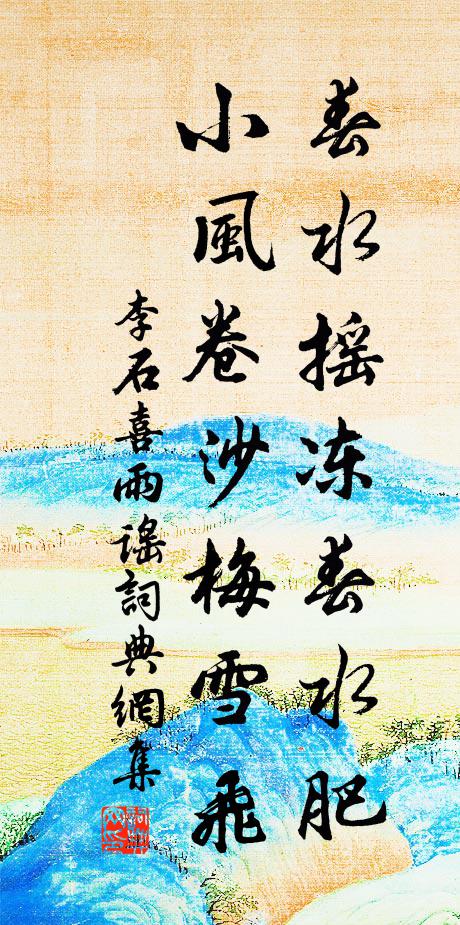 春水摇冻春水肥
小風卷沙梅雪飛
李石喜雨谣詞典網集